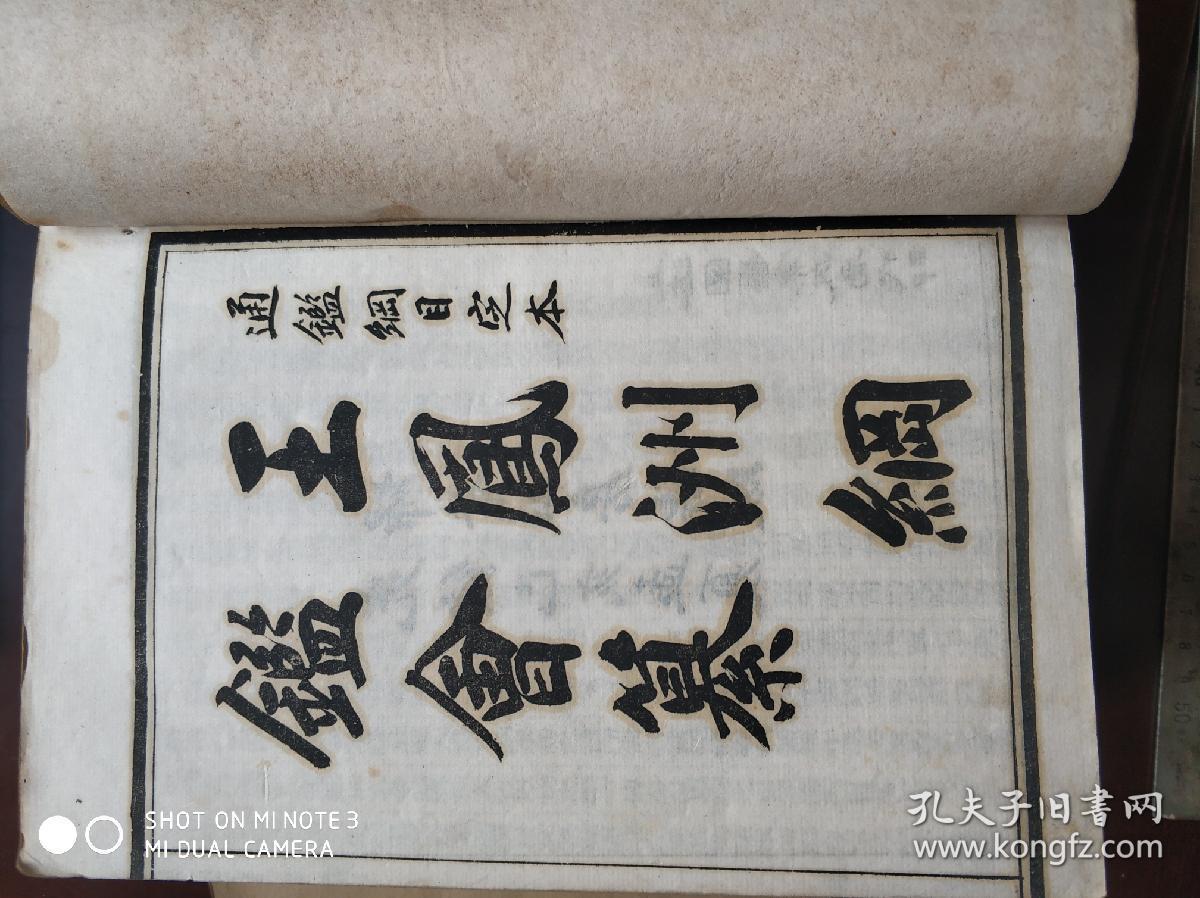 通鑑綱目定本
王鳳洲綱
鑑會纂
SHOT ON MI NOTE 3
MI DUAL CAMERA
孔夫子旧书网
www.kongfz.com